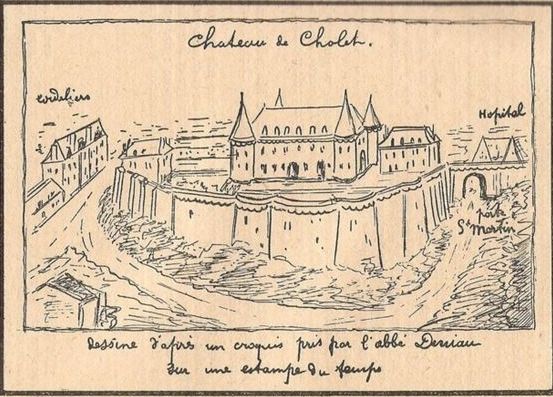 Chateau de Cholet.
Cordeliers
Hopital
porte
St Martin
Dessiné d'après un croquis pris par l'abbé Deniau
sur une estampe du temps